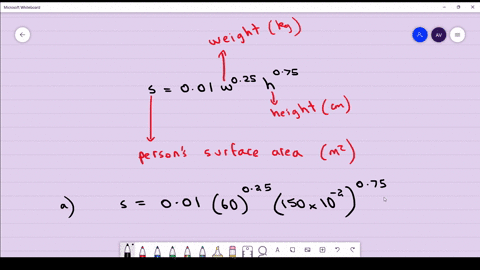 Microsoft Whiteboard
AV
weight (kg)
s = 0.01 w^0.25 h^0.75
height (cm)
person's surface area (m²)
a) s = 0.01 (60)^0.25 (150 × 10^-2)^0.75